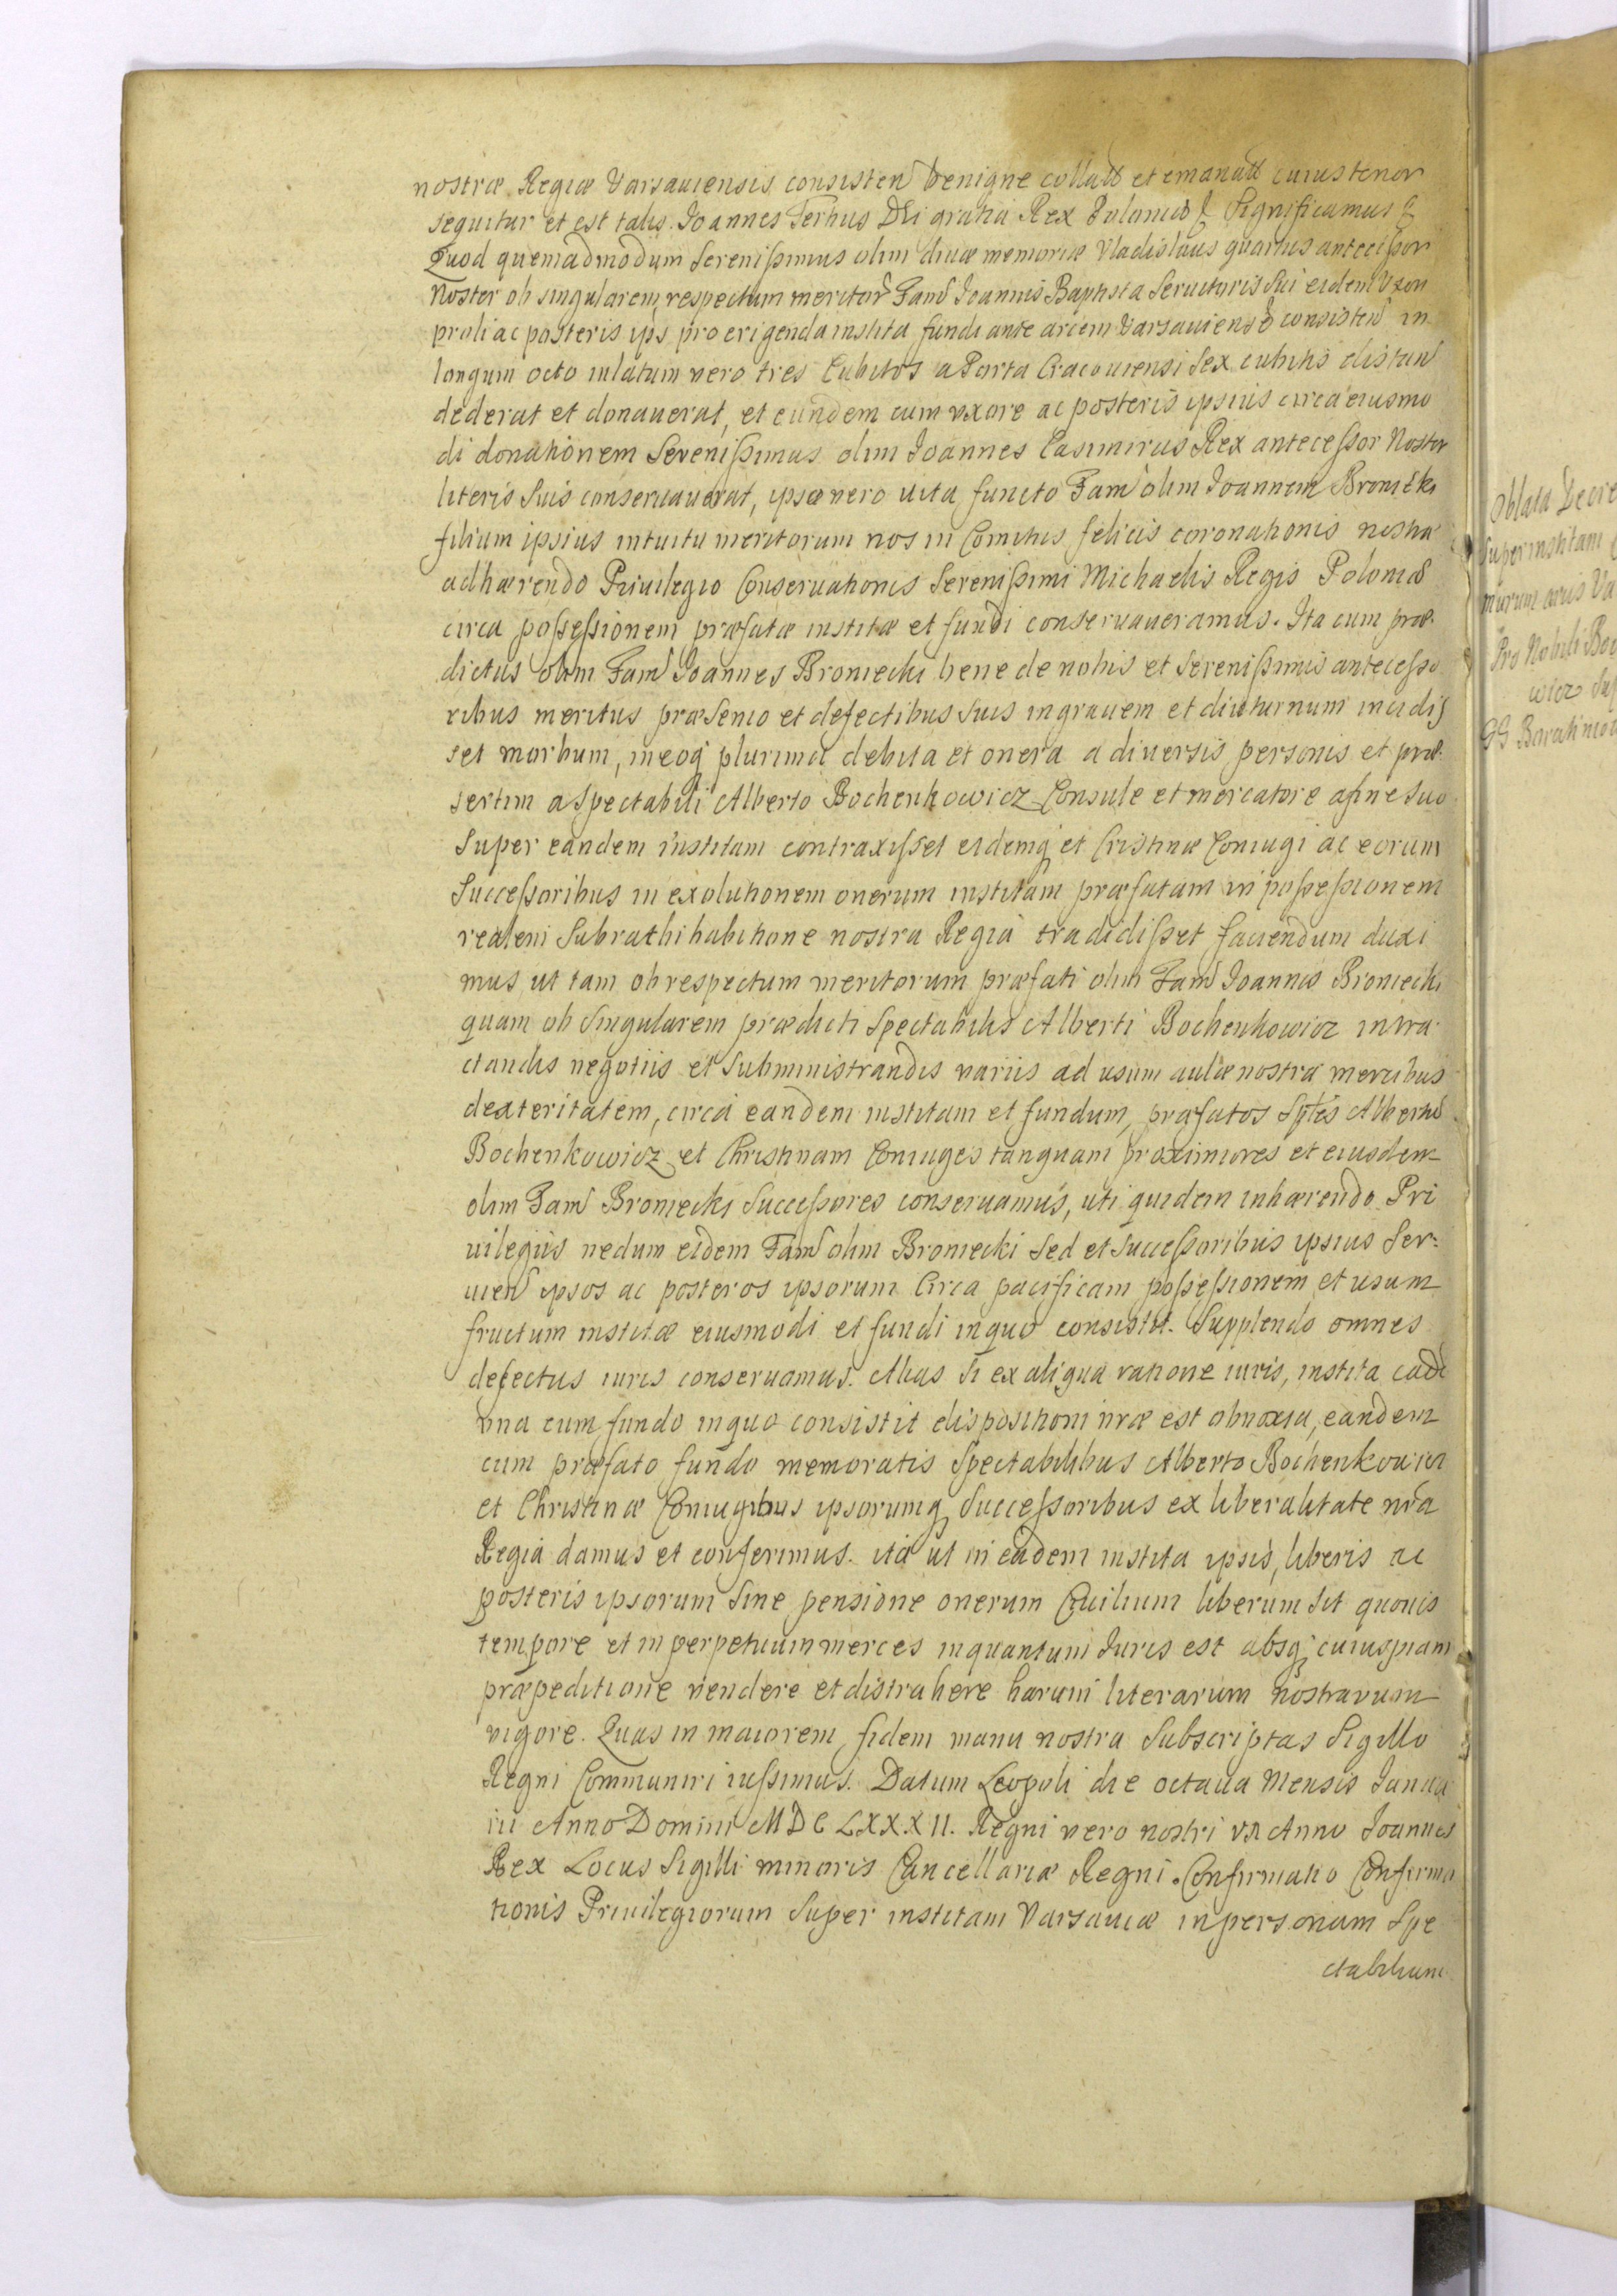 nostræ Regiæ Varsauiensis consisten benigne collat et emanat cuius tenor
sequitur et est talis. Joannes Tertius Dei gratia Rex Poloniæ Significamus
Quod quemadmodum Serenißimus olim diuæ memoriæ Vladislaus quartus anteceßor
Noster ob singularem respectum meritor Fam Joannis Baptista Seruitoris Sui eidem Uxori
proli ac posteris ips pro erigenda instita fundi ante arcem Varsauiens consisten in
longum octo in latum vero tres Cubitos a Porta Cracouiensi Sex cubitis distan
dederat et donauerat, et eundem cum uxore ac posteris ipsius circa eiusmo
di donationem Serenißimus olim Joannes Casimirus Rex anteceßor Noster
literis Suis conseruauerat, ipso vero vita functo Fam olim Joannem Broniecki
filium ipsius intuitu meritorum nos in Comitiis felicis coronationis nostræ
adhærendo Priuilegio Conseruationis Serenißimi Michaelis Regis Poloniæ
circa poßeßionem præfatæ institæ et fundi conseruaueramus. Ita cum præ
dictus olim Fam Joannes Broniecki bene de nobis et Serenißimis anteceßo
ribus meritus præ Senio et defectibus suis in grauem et diuturnum incidis
set morbum, ineoq plurima debita et onera a diuersis personis et præ
sertim a Spectabili Alberto Bochenkowicz Consule et mercatore afine Suo
Super eandem institam contraxißet eidemq et Cristinæ Coniugi ac eorum
Succeßoribus in exolutionem onerum institam præfatam in poßeßionem
realem Sub rathihabitione nostra Regia tradidißet faciendum duxi
mus ut tam ob respectum meritorum præfati olim Fam Joannis Broniecki
quam ob Singularem prædicti Spectabilis Alberti Bochenkowicz in tra
ctandis negotiis et Subministrandis variis ad usum aulæ nostræ mercibus
dexteritatem, circa eandem institam et fundum, præfatos Sptes Albertu
Bochenkowicz et Christinam Coniuges tanquam proximiores et eiusdem
olim Fam Broniecki Succeßores conseruamus, uti quidem inhærendo Pri
uilegiis nedum eidem Fam olim Broniecki Sed et Succeßoribus ipsius Ser
uien ipsos ac posteros ipsorum Circa pacificam poßeßionem et usum
fructum institæ eiusmodi et fundi in quo consistit. Supplendo omnes
defectus iuris conseruamus. Alias Si ex aliqua ratione iuris, instita eade
una cum fundo in quo consistit dispositioni nræ est obnoxia, eandem
cum præfato fundo memoratis Spectabilibus Alberto Bochenkouicz
et Christinæ Coniugibus ipsorumq Succeßoribus ex liberalitate nra
Regia damus et conferimus. ita ut in eadem instita ipsis, liberis ac
posteris ipsorum Sine pensione onerum Ciuilium liberum Sit quouis
tempore et in perpetuum merces in quantum Juris est absq cuiuspiam
præpeditione vendere et distrahere harum literarum nostrarum
vigore. Quas in maiorem fidem manu nostra Subscriptas Sigillo
Regni Communiri iußimus. Datum Leopoli die octaua Mensis Janua
rii Anno Domini MDCLXXXII. Regni vero nostri VII Anno Joannes
Rex Locus Sigilli minoris Cancellariæ Regni. Confirmatio Confirma
tionis Priuilegiorum Super institam Varsauiæ in personam Spe
ctabilium
Oblata Decre
Super institam
murum arcis Va
Pro Nobili Boc
wicz Sup
GG Baratinior